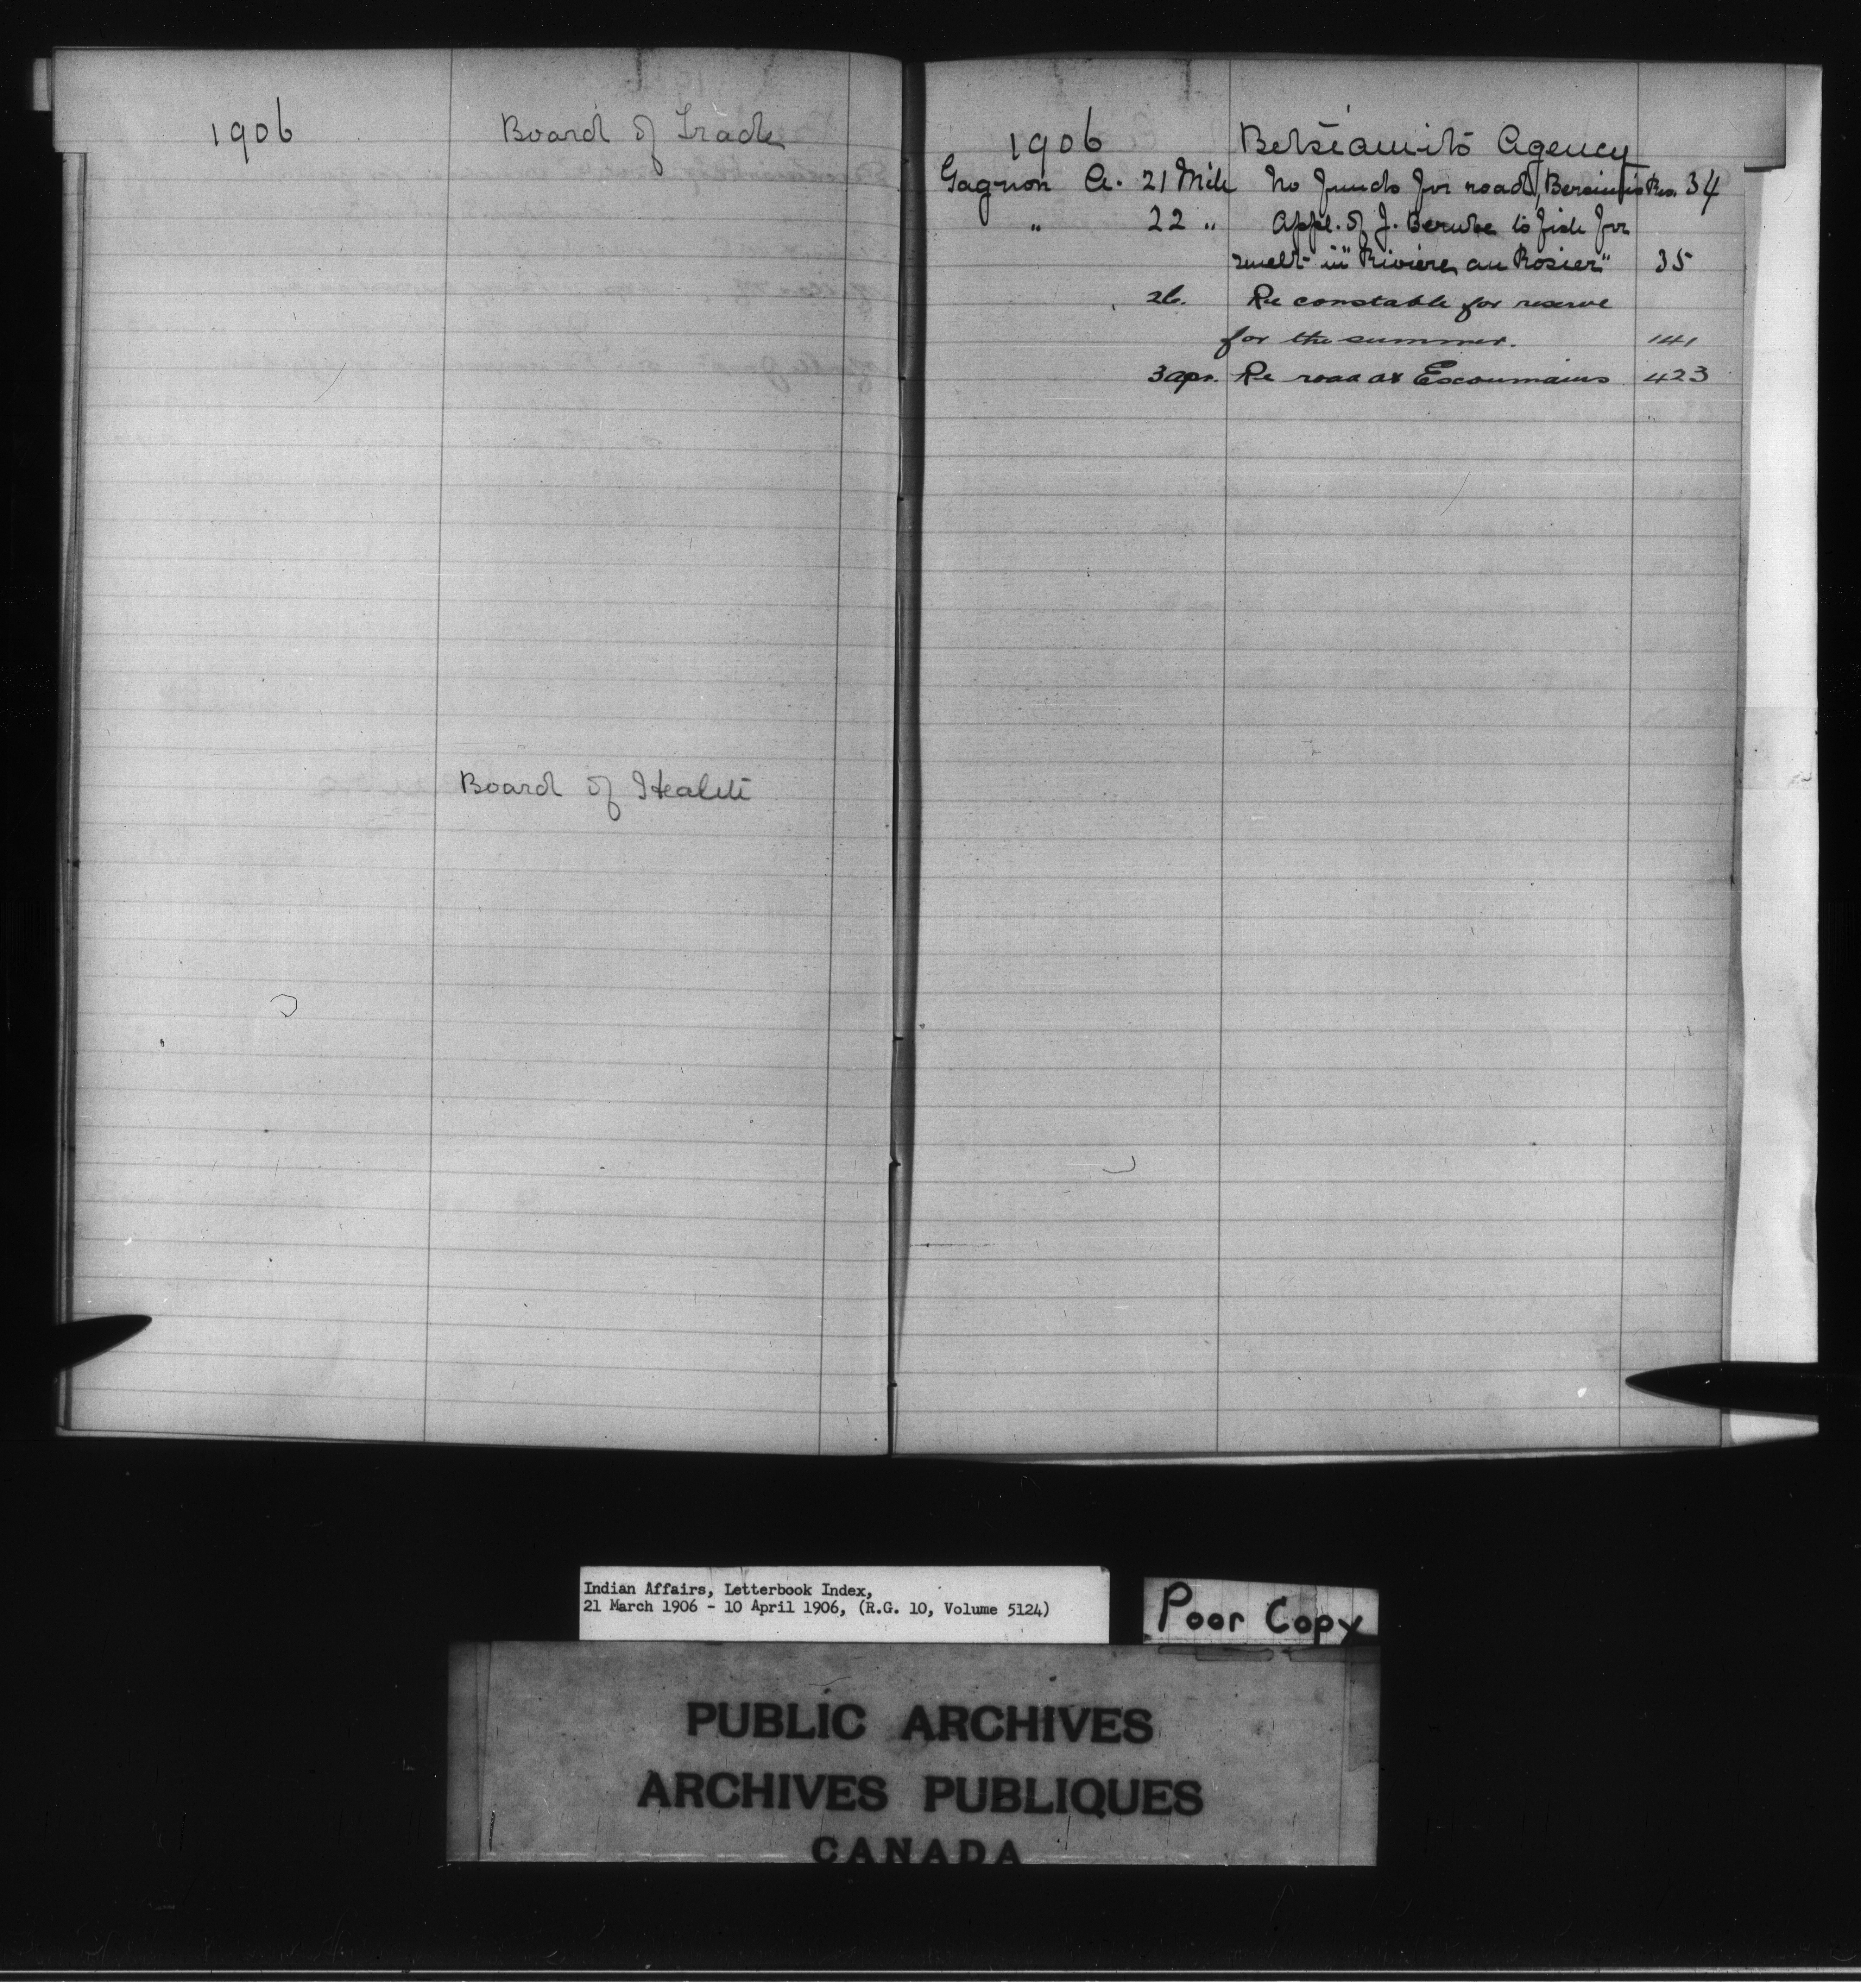 1906 Board of Trade
Board of Health
1906 Betsiamits Agency
Gagnon A. 21 Mch No funds for road, Bersimis Res. 34
" 22 " Appl. of J. Berube to fish for
smelt in "Riviere au Rosier" 35
26. Re constable for reserve
for the summer. 141
3 apr. Re road at Escoumains 423
Indian Affairs, Letterbook Index,
21 March 1906 - 10 April 1906, (R.G. 10, Volume 5124)
Poor Copy
PUBLIC ARCHIVES
ARCHIVES PUBLIQUES
CANADA